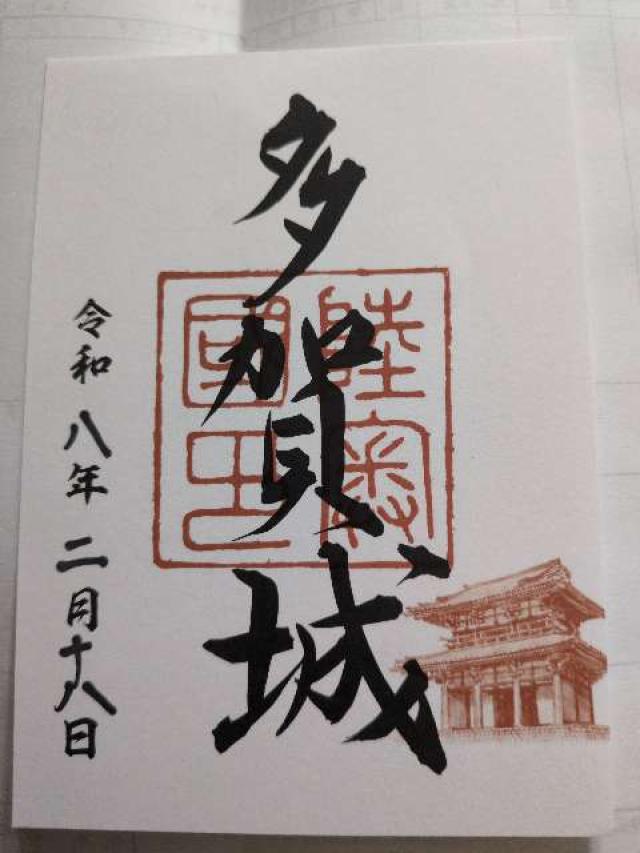 多賀城
陸奥
國印
令和八年二月十八日